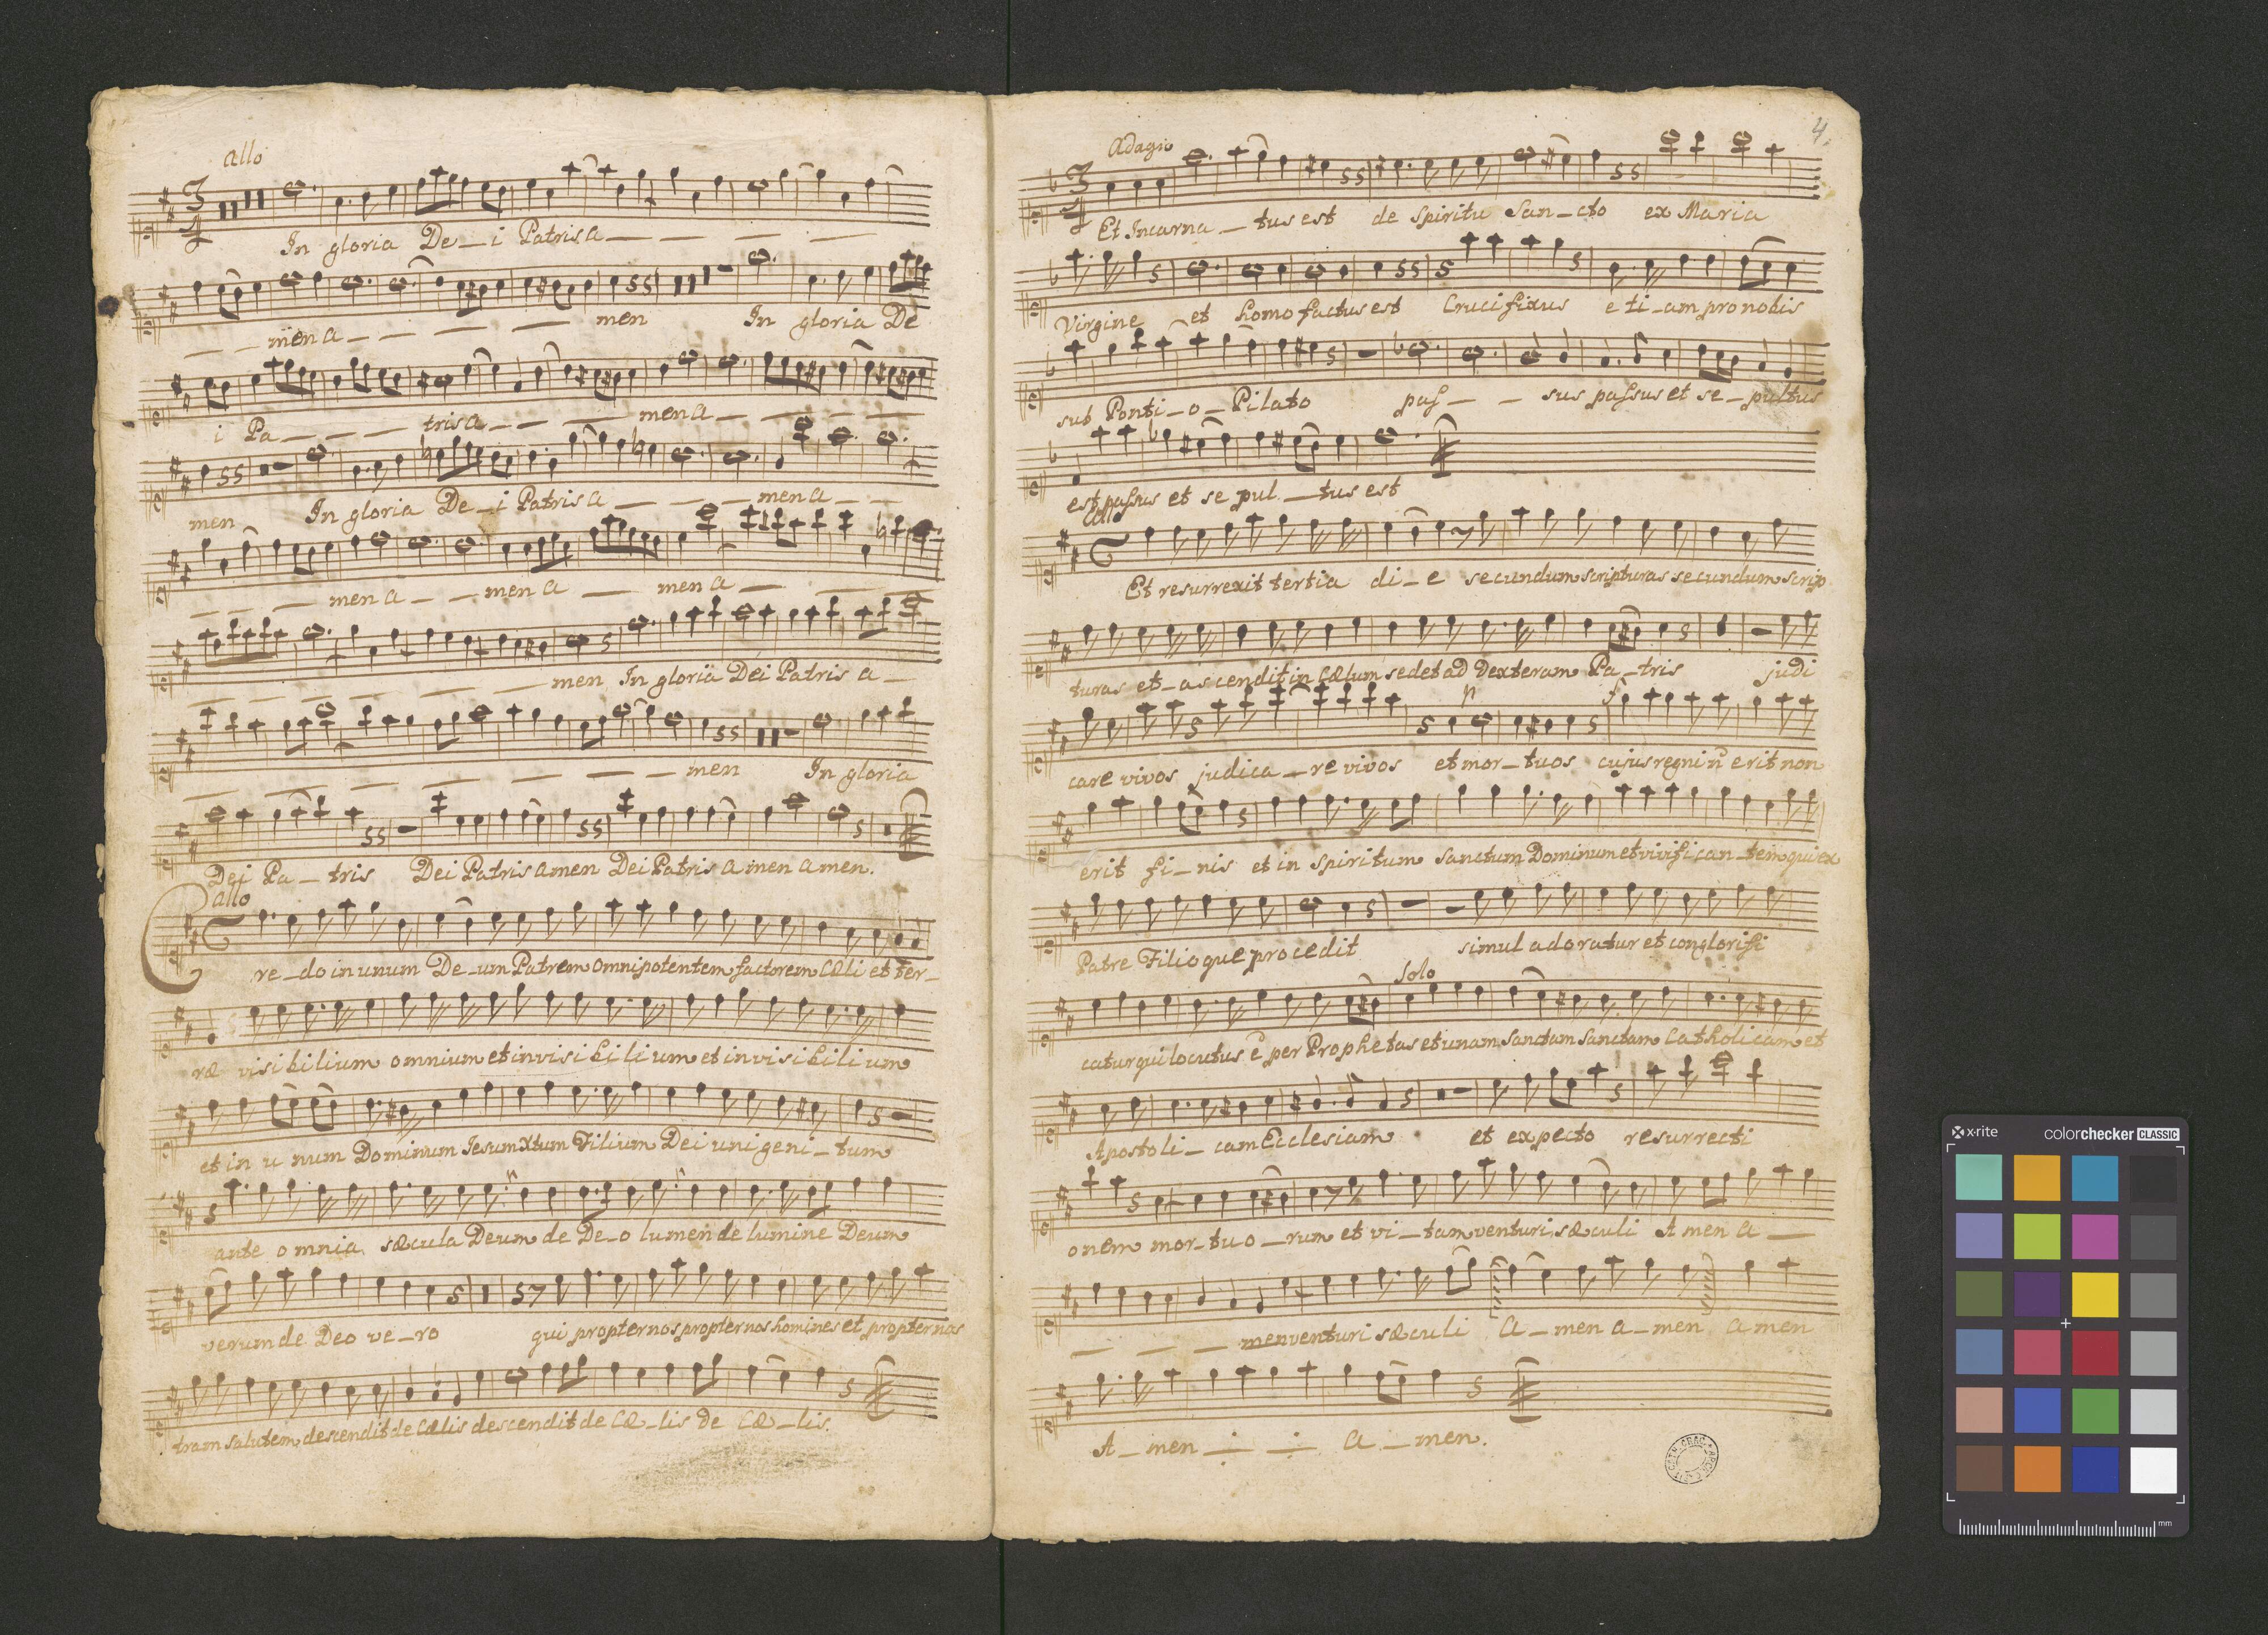 allo
In gloria De_i Patris a_ _ _ _ _
_ _ men a_ _ _ _ men In gloria De
i Pa_ _ _ _ tris a_ _ _ _ men a_ _ _ _
men In gloria De_i Patris a_ _ _ _ men a_ _
_ _ _ men a_ _ men a _ men a _ _ _
_ _ _ _ _ men In gloria Dei Patris a_
_ _ _ _ _ _ men In gloria
Dei Pa_tris Dei Patris amen Dei Patris a men amen.
allo
Cre_do in unum De_um Patrem omnipotentem factorem Cæli et ter_
ræ visibilium omnium et invisibilium et invisibilium
et in u num Dominum Jesum Xtum Filium Dei unigeni_tum
ante omnia sæcula Deum de De_o lumen de lumine Deum
verum de Deo ve_ro qui propter nos propter nos homines et propter nos
tram salutem descendit de Cælis descendit de Cæ_lis de Cæ_lis.
4.
Adagio
Et Incarna_tus est de Spiritu San_cto ex Maria
Virgine et homo factus est Crucifixus eti_am pro nobis
sub Ponti_o_Pilato paſ_ _ sus paſsus et se_pultus
est paſsus et se pul_tus est
allo
Et resurrexit tertia di_e secundum scripturas secundum scrip
turas et_ascendit in Cælum sedet ad Dexteram Pa_tris judi
p f
care vivos judica_re vivos et mor_tuos cujus regni ñ erit non
erit fi_nis et in Spiritum Sanctum Dominum et vivifican_tem qui ex
Patre Filioque procedit simul adoratur et conglorifi
Solo
catur qui locutus ẽ per Prophetas et unam Sanctam Sanctam Catholicam et
Apostoli_cam Ecclesiam et expecto resurrecti
onem mor_tuo_rum et vi_tam venturi sæculi Amen a_
_ _ _ men venturi sæculi a_men a_men amen
A_men _ _ a_men.
x-rite colorchecker CLASSIC
mm